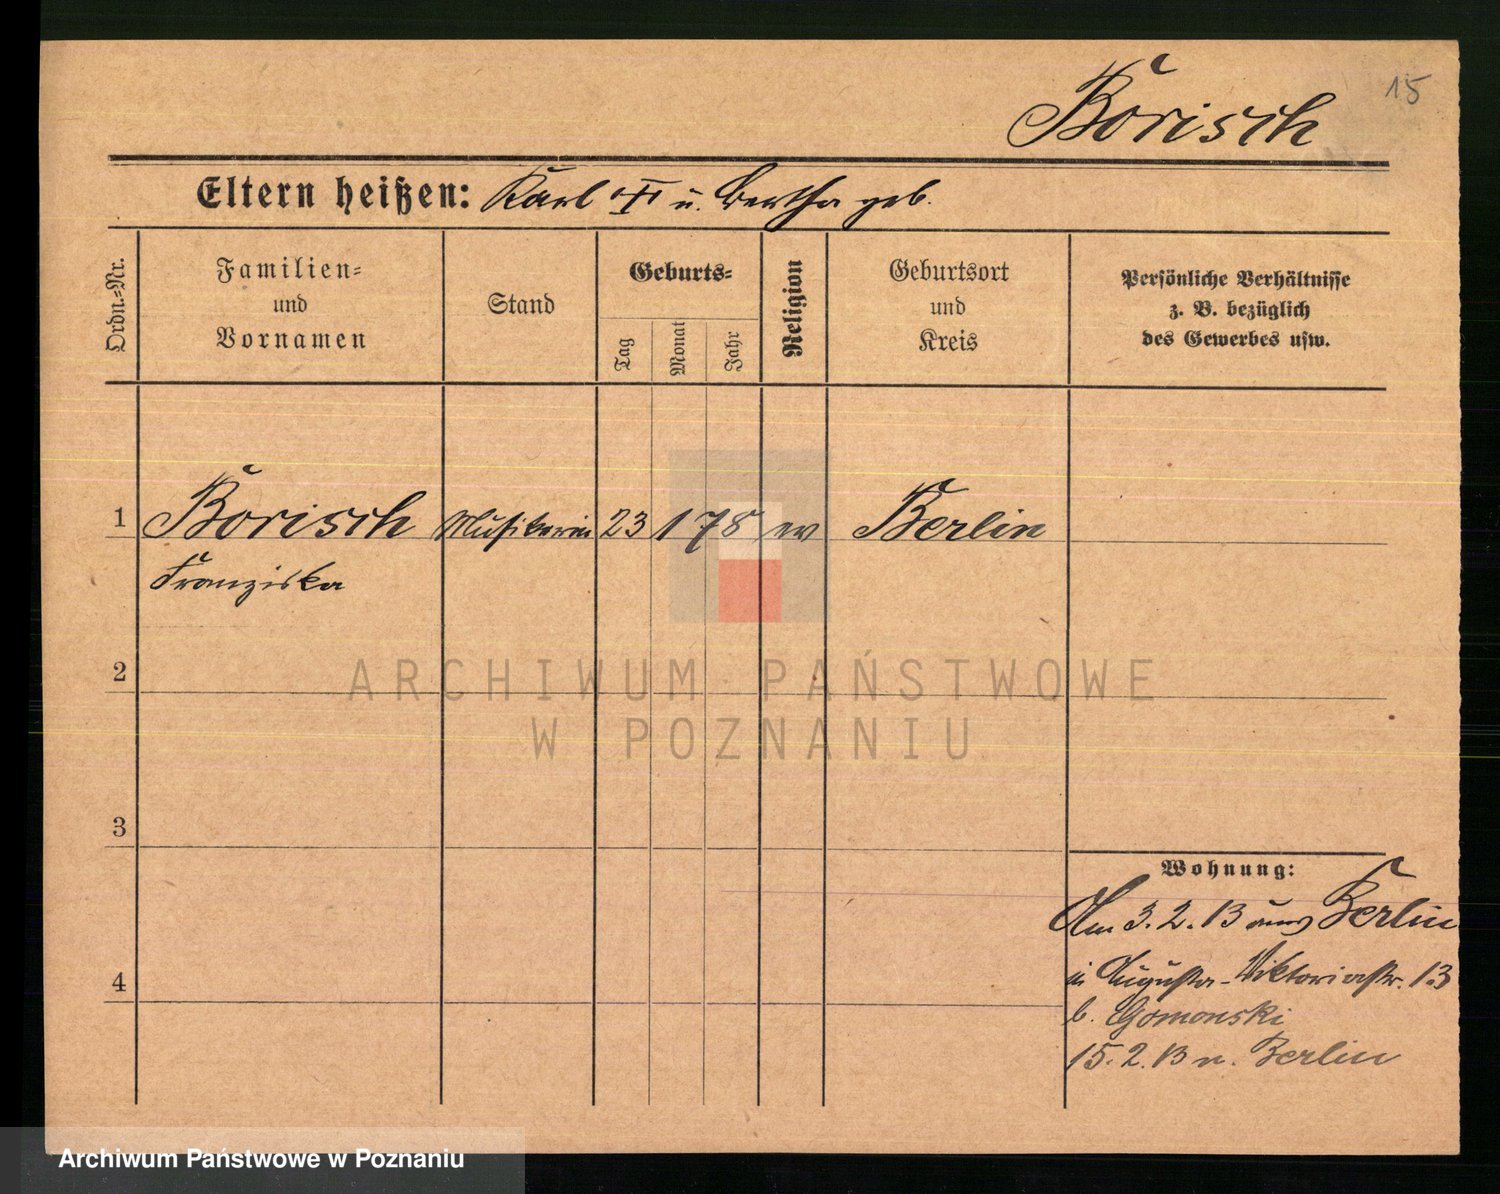 15
Borisch
Eltern heißen: Karl u. Bertha geb.
Ordn.-Nr.
Familien-
und
Vornamen
Stand
Geburts-
Tag
Monat
Jahr
Religion
Geburtsort
und
Kreis
Persönliche Verhältnisse
z. B. bezüglich
des Gewerbes usw.
1 Borisch Musikerin 23 1 78 ev Berlin
Franziska
2
ARCHIWUM PAŃSTWOWE
W POZNANIU
3
Wohnung:
Am 3. 2. 13 aus Berlin
in Augusta-Viktoriastr. 13
4
b. Gomonski
15. 2. 13 n. Berlin
Archiwum Państwowe w Poznaniu